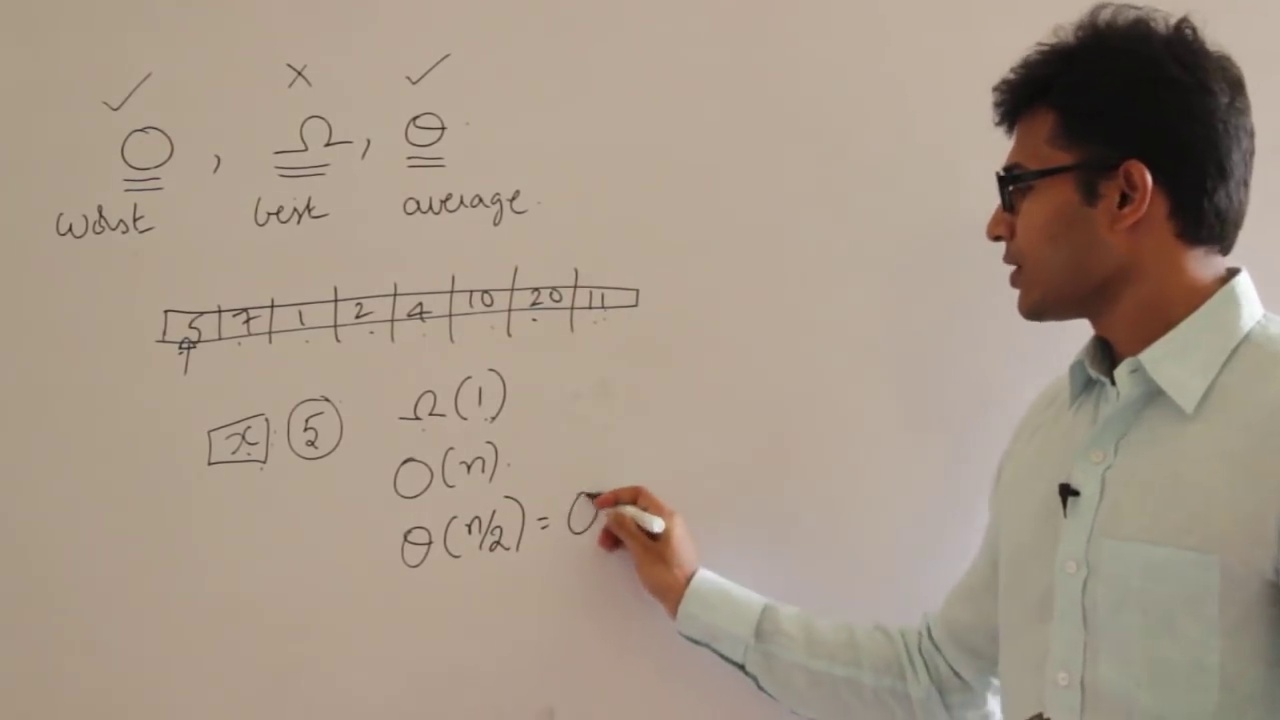 ✓ × ✓
O, Ω, θ
worst best average
5 7 1 2 4 10 20 11
x 5 Ω(1)
O(n)
θ(n/2) = O